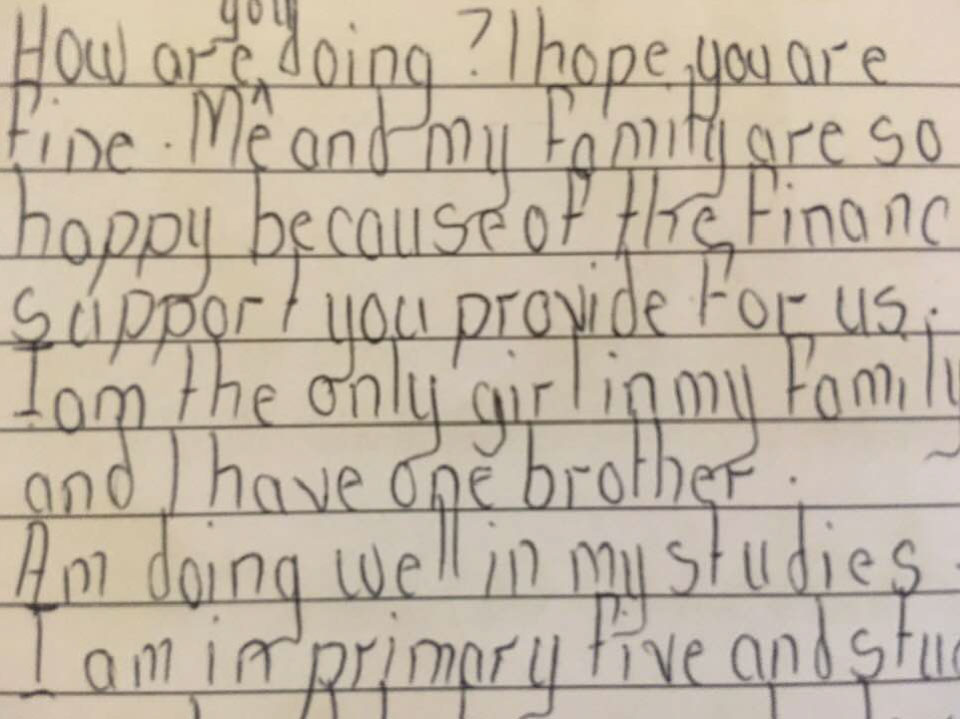 How are you doing? I hope you are
fine. Me and my family are so
happy because of the financ
support you provide for us.
I am the only girl in my family
and I have one brother.
Am doing well in my studies.
I am in primary five and stud